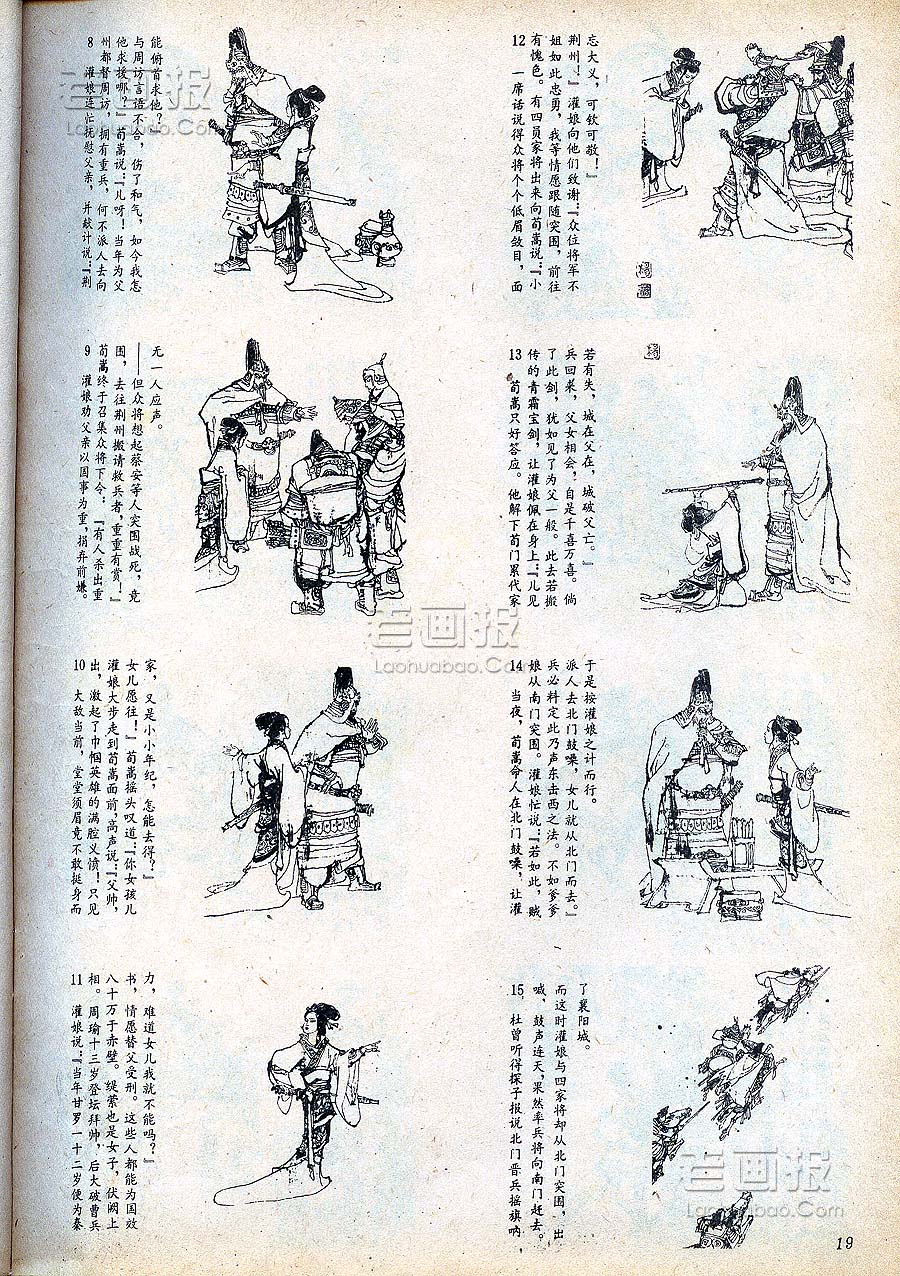 8 灌娘连忙抚慰父亲，并献计说：『荆
州都督周访，拥有重兵，何不派人去向
他求援哪？』荀嵩说：『儿呀！当年为父
与周访言语不合，伤了和气，如今我怎
能俯首求他？』
9 灌娘劝父亲以国事为重，捐弃前嫌。
荀嵩终于召集众将下令：『有人杀出重
围，去往荆州搬请救兵者，重重有赏！』
——但众将想起蔡安等人突围战死，竟
无一人应声。
10 大敌当前，堂堂须眉竟不敢挺身而
出，激起了巾帼英雄的满腔义愤！只见
灌娘大步走到荀嵩面前，高声说：『父帅，
女儿愿往！』荀嵩摇头叹道：『你女孩儿
家，又是小小年纪，怎能去得？』
11 灌娘说：『当年甘罗一十二岁便为秦
相。周瑜十三岁登坛拜帅，后大破曹兵
八十万于赤壁。缇萦也是女子，伏阙上
书，情愿替父受刑。这些人都能为国效
力，难道女儿我就不能吗？』
12 一席话说得众将个个低眉敛目，面
有愧色。有四员家将出来向荀嵩说：『小
姐如此忠勇，我等情愿跟随突围，前往
荆州！』灌娘向他们致谢：『众位将军不
忘大义，可钦可敬！』
13 荀嵩只好答应。他解下荀门累代家
传的青霜宝剑，让灌娘佩在身上：『儿见
了此剑，犹如见了为父一般。此去若搬
兵回来，父女相会，自是千喜万喜。倘
若有失，城在父在，城破父亡。』
14 当夜，荀嵩命人在北门鼓噪，让灌
娘从南门突围。灌娘忙说：『若如此，贼
兵必料定此乃声东击西之法。不如爹爹
派人去北门鼓噪，女儿就从北门而去。』
于是按灌娘之计而行。
15 杜曾听得探子报说北门晋兵摇旗呐
喊，鼓声连天，果然率兵将向南门赶去。
而这时灌娘与四家将却从北门突围，出
了襄阳城。
19
老画报
Laohuabao.Com
老画报
Laohuabao.Com
老画报
Laohuabao.Com